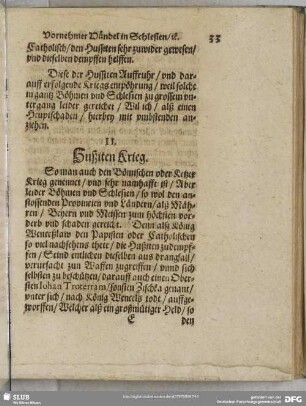 Vornehmer Händel in Schlesien/ꝛc. 33
Catholisch/ den Hussiten sehr zuwider gewesen/
vnd dieselben dempffen helffen.
Diese der Hussiten Auffruhr/ vnd dar-
auff erfolgende Kriegs empöhrung/ weil solche
in gantz Böhmen vnd Schlesien zu grossem vn-
tergang leider gereichet/ Wil ich/ alß einen
Heuptschaden/ hierbey mit vmbstenden an-
ziehen.
II.
Hußiten Krieg.
So man auch den Böhmischen oder Ketzer
Krieg genennet/ vnd sehr namhafft ist/ Aber
leider Böhmen vnd Schlesien/ so wol den an-
stossenden Provincien vnd Ländern/ alß Mäh-
ren/ Beyern vnd Meissen zum höchsten vor-
derb vnd schaden gereicht. Denn alß König
Wenceßlaw den Papisten oder Catholischen
so viel nachsehens thete/ die Hußiten zudempf-
fen/ Seind entlichen dieselben aus drangsal/
verursacht zum Waffen zugreiffen/ vnnd sich
selbsten zu beschützen/ darauff auch einen Ober-
sten Iohan Troterram/ sonsten Zischka genant/
vnter sich/ nach König Wencels todt/ auffge-
worffen/ Welcher alß ein großmütiger Held/ so
E den
SLUB
Wir führen Wissen.
gefördert von der
Deutschen Forschungsgemeinschaft
DFG